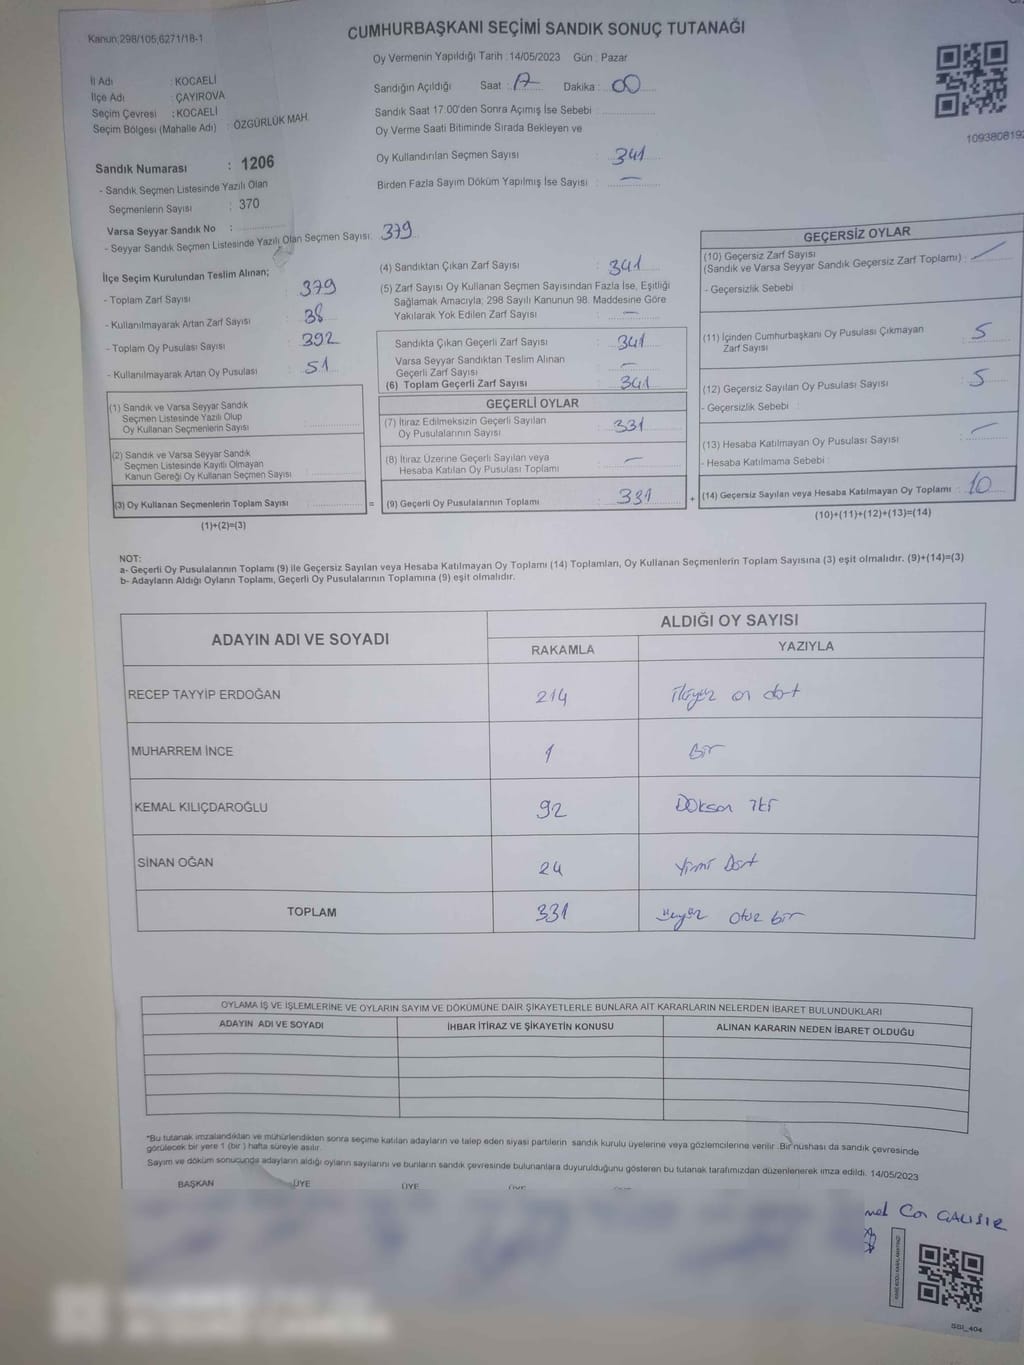 Kanun;298/105,6271/18-1
CUMHURBAŞKANI SEÇİMİ SANDIK SONUÇ TUTANAĞI
Oy Vermenin Yapıldığı Tarih : 14/05/2023 Gün : Pazar
İl Adı : KOCAELİ
İlçe Adı : ÇAYIROVA
Seçim Çevresi : KOCAELİ
Seçim Bölgesi (Mahalle Adı) : ÖZGÜRLÜK MAH.
Sandık Numarası : 1206
- Sandık Seçmen Listesinde Yazılı Olan
Seçmenlerin Sayısı : 370
Varsa Seyyar Sandık No :
- Seyyar Sandık Seçmen Listesinde Yazılı Olan Seçmen Sayısı: 379
Sandığın Açıldığı Saat : 17 Dakika : 00
Sandık Saat 17.00'den Sonra Açımış İse Sebebi :
Oy Verme Saati Bitiminde Sırada Bekleyen ve
Oy Kullandırılan Seçmen Sayısı : 341
Birden Fazla Sayım Döküm Yapılmış İse Sayısı : —
1093808192
İlçe Seçim Kurulundan Teslim Alınan;
- Toplam Zarf Sayısı : 379
- Kullanılmayarak Artan Zarf Sayısı : 38
- Toplam Oy Pusulası Sayısı : 392
- Kullanılmayarak Artan Oy Pusulası : 51
(1) Sandık ve Varsa Seyyar Sandık
Seçmen Listesinde Yazılı Olup
Oy Kullanan Seçmenlerin Sayısı :
(2) Sandık ve Varsa Seyyar Sandık
Seçmen Listesinde Kayıtlı Olmayan
Kanun Gereği Oy Kullanan Seçmen Sayısı :
(3) Oy Kullanan Seçmenlerin Toplam Sayısı : =
(1)+(2)=(3)
(4) Sandıktan Çıkan Zarf Sayısı : 341
(5) Zarf Sayısı Oy Kullanan Seçmen Sayısından Fazla İse, Eşitliği
Sağlamak Amacıyla; 298 Sayılı Kanunun 98. Maddesine Göre
Yakılarak Yok Edilen Zarf Sayısı : —
Sandıkta Çıkan Geçerli Zarf Sayısı : 341
Varsa Seyyar Sandıktan Teslim Alınan
Geçerli Zarf Sayısı : —
(6) Toplam Geçerli Zarf Sayısı : 341
GEÇERLİ OYLAR
(7) İtiraz Edilmeksizin Geçerli Sayılan
Oy Pusulalarının Sayısı : 331
(8) İtiraz Üzerine Geçerli Sayılan veya
Hesaba Katılan Oy Pusulası Toplamı : —
(9) Geçerli Oy Pusulalarının Toplamı : 331 +
GEÇERSİZ OYLAR
(10) Geçersiz Zarf Sayısı
(Sandık ve Varsa Seyyar Sandık Geçersiz Zarf Toplamı) : —
- Geçersizlik Sebebi :
(11) İçinden Cumhurbaşkanı Oy Pusulası Çıkmayan
Zarf Sayısı : 5
(12) Geçersiz Sayılan Oy Pusulası Sayısı : 5
- Geçersizlik Sebebi :
(13) Hesaba Katılmayan Oy Pusulası Sayısı : —
- Hesaba Katılmama Sebebi :
(14) Geçersiz Sayılan veya Hesaba Katılmayan Oy Toplamı : 10
(10)+(11)+(12)+(13)=(14)
NOT:
a- Geçerli Oy Pusulalarının Toplamı (9) ile Geçersiz Sayılan veya Hesaba Katılmayan Oy Toplamı (14) Toplamları, Oy Kullanan Seçmenlerin Toplam Sayısına (3) eşit olmalıdır. (9)+(14)=(3)
b- Adayların Aldığı Oyların Toplamı, Geçerli Oy Pusulalarının Toplamına (9) eşit olmalıdır.
ADAYIN ADI VE SOYADI
ALDIĞI OY SAYISI
RAKAMLA YAZIYLA
RECEP TAYYİP ERDOĞAN 214 ikiyüz on dört
MUHARREM İNCE 1 Bir
KEMAL KILIÇDAROĞLU 92 Doksan iki
SİNAN OĞAN 24 Yirmi Dört
TOPLAM 331 üçyüz otuz bir
OYLAMA İŞ VE İŞLEMLERİNE VE OYLARIN SAYIM VE DÖKÜMÜNE DAİR ŞİKAYETLERLE BUNLARA AİT KARARLARIN NELERDEN İBARET BULUNDUKLARI
ADAYIN ADI VE SOYADI İHBAR İTİRAZ VE ŞİKAYETİN KONUSU ALINAN KARARIN NEDEN İBARET OLDUĞU
*Bu tutanak imzalandıktan ve mühürlendikten sonra seçime katılan adayların ve talep eden siyasi partilerin sandık kurulu üyelerine veya gözlemcilerine verilir .Bir nüshası da sandık çevresinde
görülecek bir yere 1 (bir ) hafta süreyle asılır.
Sayım ve döküm sonucunda adayların aldığı oyların sayılarını ve bunların sandık çevresinde bulunanlara duyurulduğunu gösteren bu tutanak tarafımızdan düzenlenerek imza edildi. 14/05/2023
BAŞKAN ÜYE ÜYE ÜYE
Can ÇALIŞIR
SSI_404